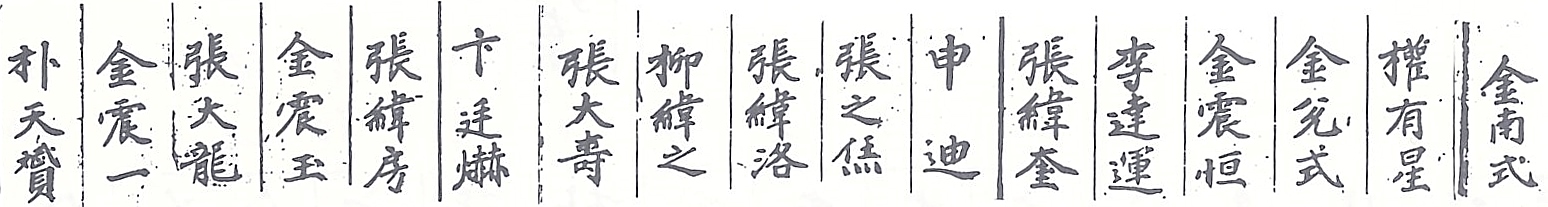 金南式
權有星
金兌式
金震恒
李達運
張緯奎
申迪
張之烋
張緯洛
柳緯之
張大壽
卞廷爀
張緯房
金震玉
張大龍
金震一
朴天贇